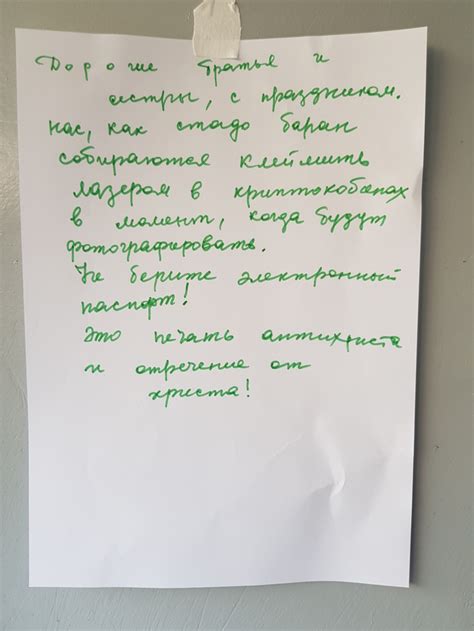 Дорогие братья и
сестры, с праздником.
Нас, как стадо баран
собираются клеймить
лазером в криптокобенах
в момент, когда будут
фотографировать.
Не берите электронный
паспорт!
Это печать антихриста
и отречение от
христа!